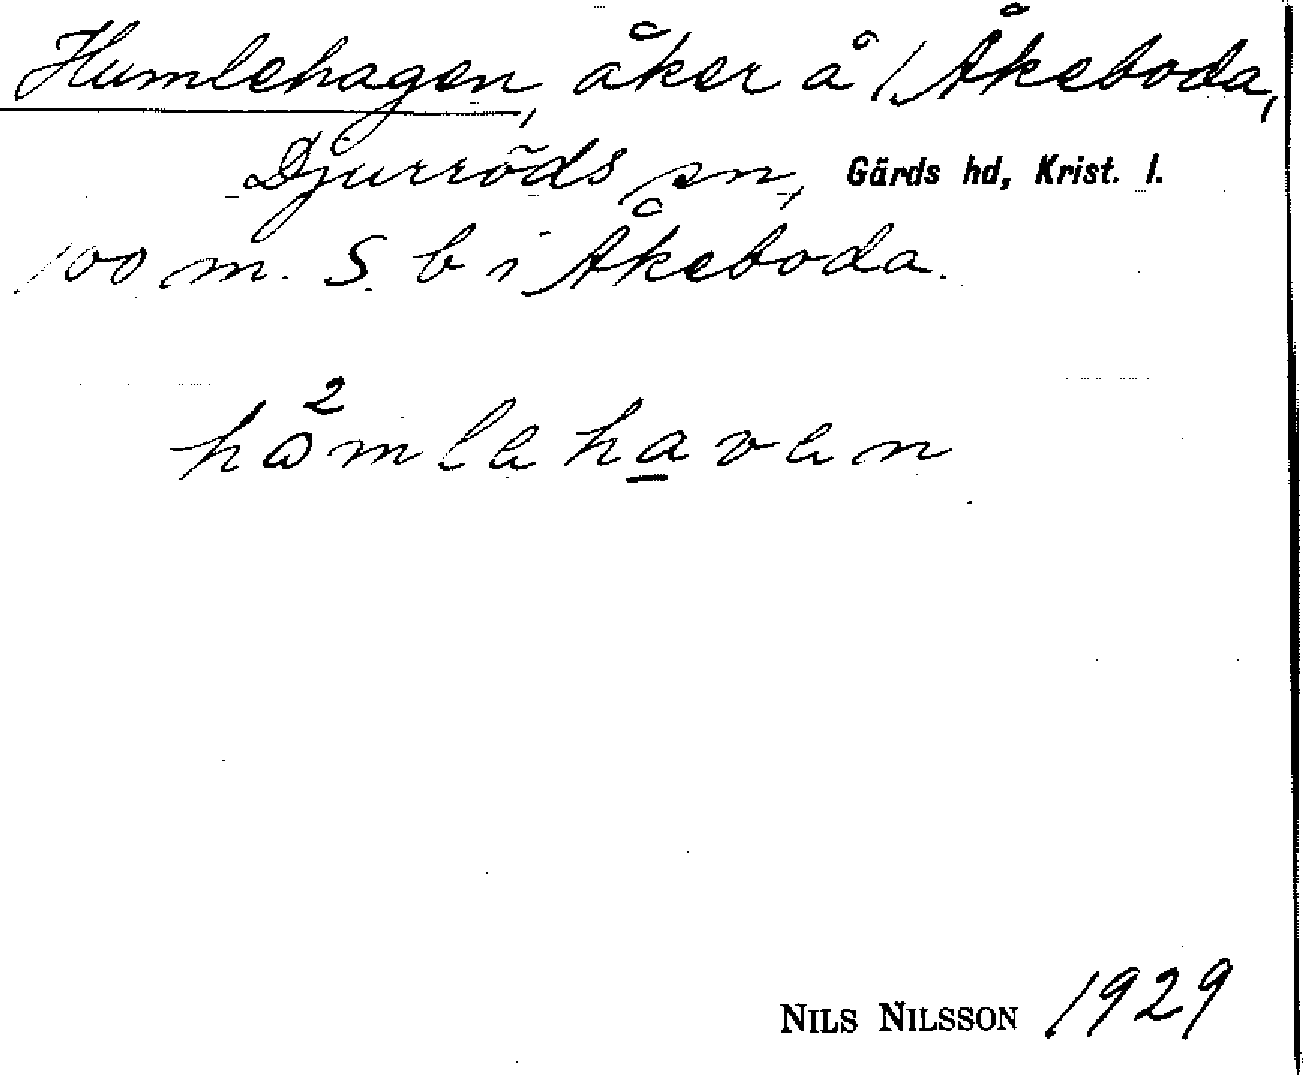 Humlehagen, åker å 1 Åkeboda,
Djurröds sn, Gärds hd, Krist. l.
100 m. S. b i Åkeboda.
hå²mlahavan
NILS NILSSON 1929